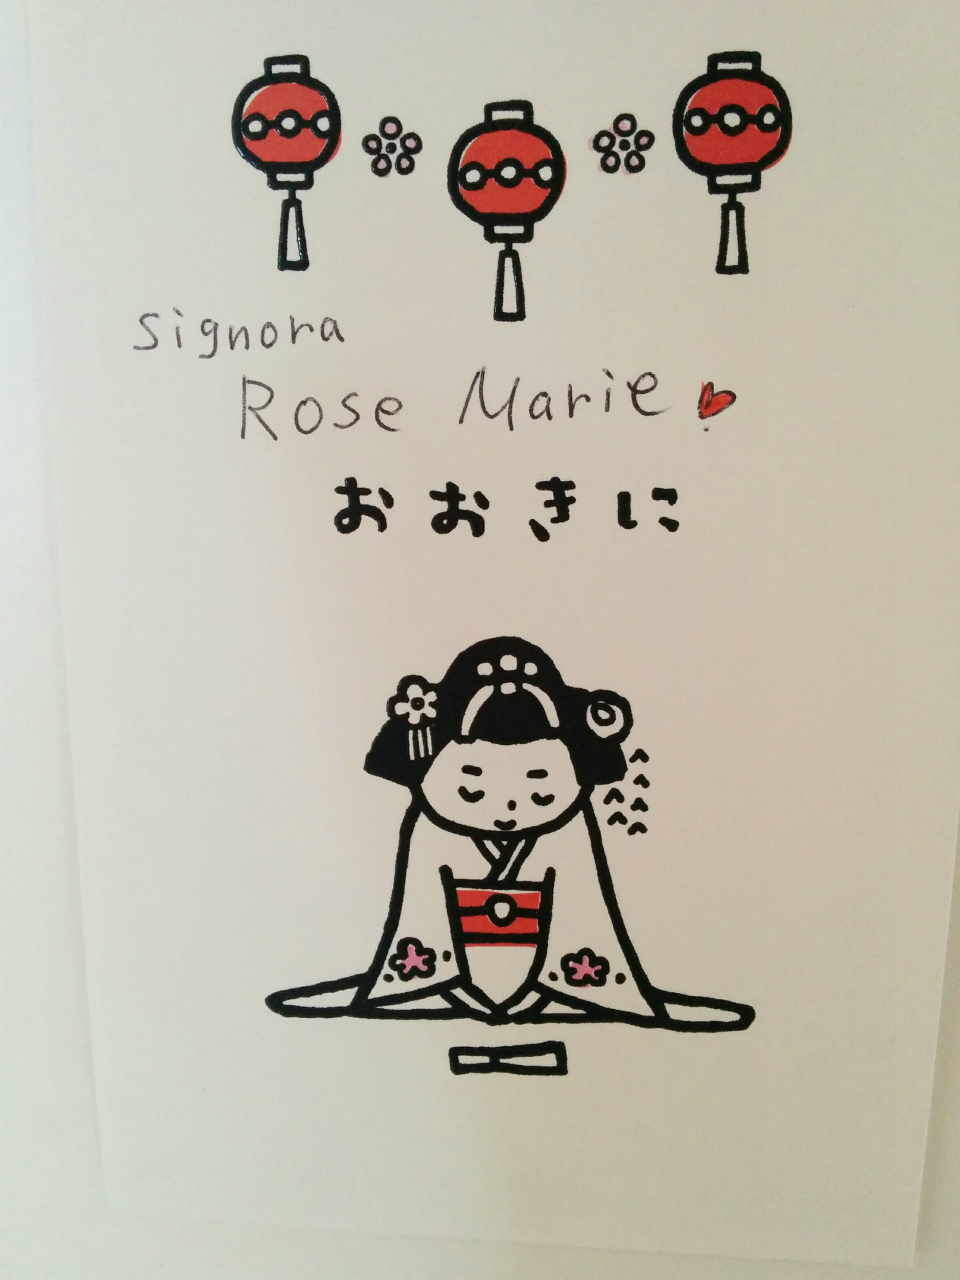 Signora
Rose Marie
おおきに